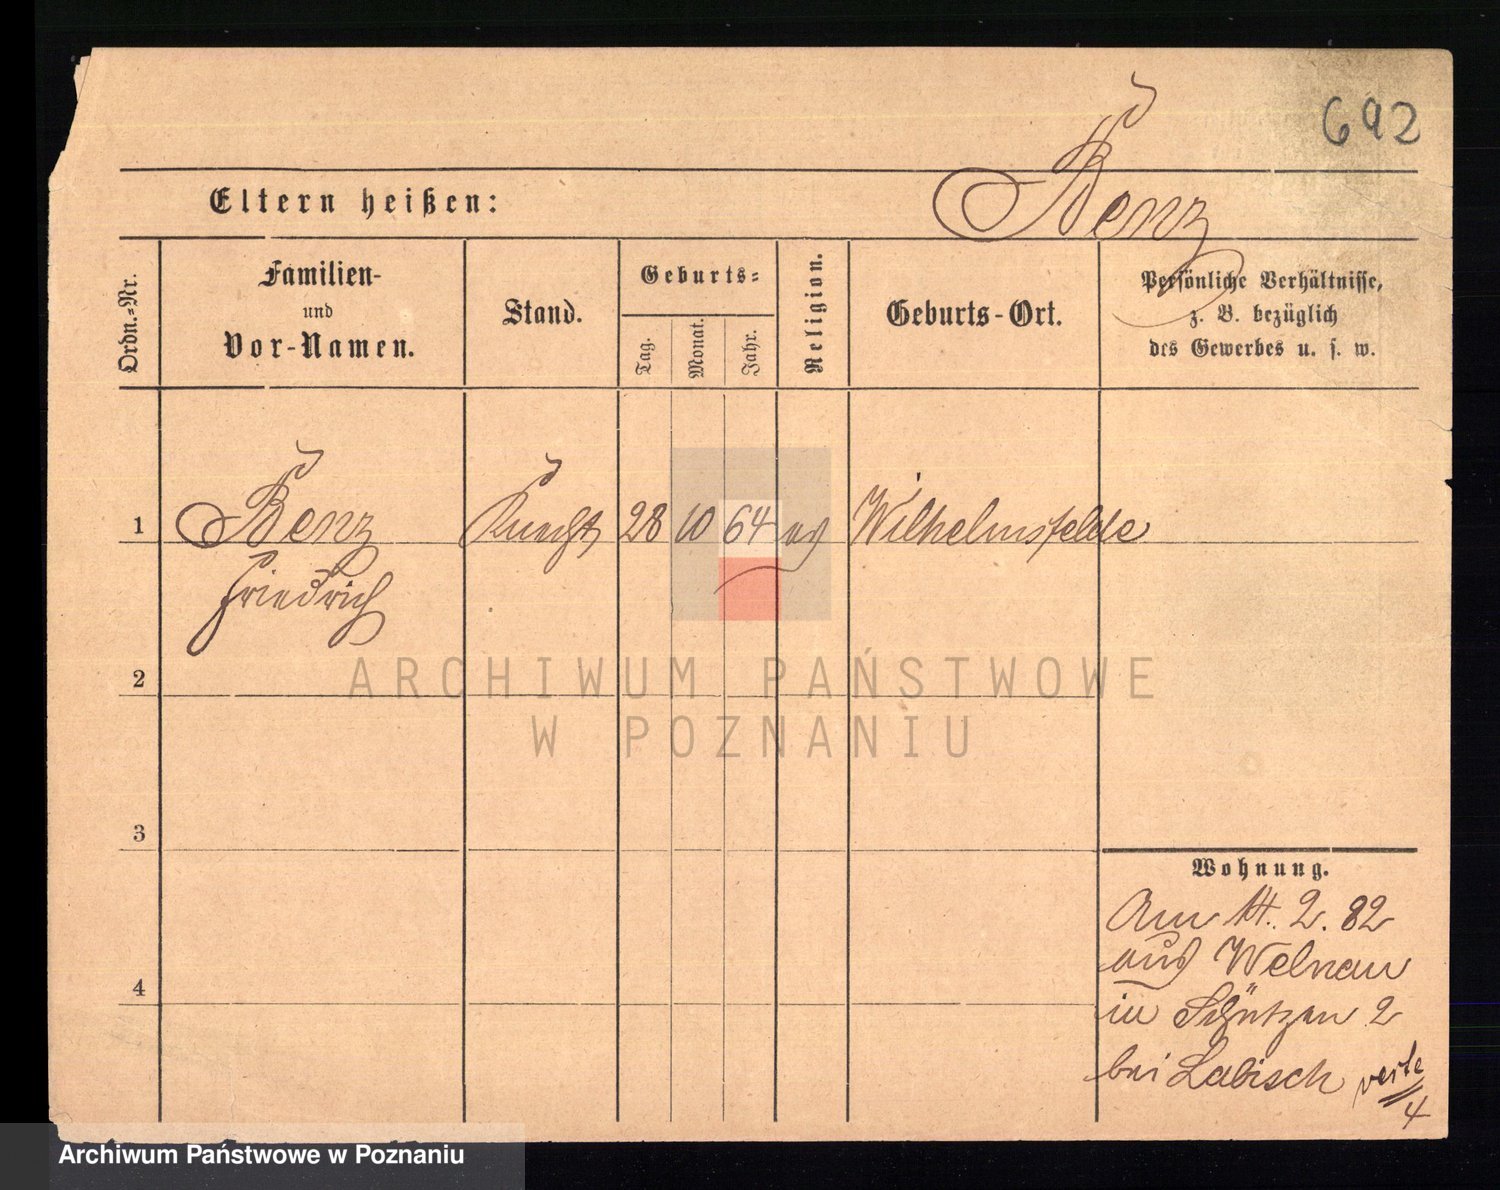 692
Eltern heißen:
Benz
Ordn.-Nr.
Familien-
und
Vor-Namen.
Stand.
Geburts-
Tag.
Monat.
Jahr.
Religion.
Geburts-Ort.
Persönliche Verhältnisse,
z. B. bezüglich
des Gewerbes u. s. w.
1
Benz
Friedrich
Knecht
28
10
64
ev
Wilhelmsfelde
2
3
4
Wohnung.
Am 14. 2. 82
aus Welnau
in Schützen 2
bei Labisch
verte
4
ARCHIWUM PAŃSTWOWE
W POZNANIU
Archiwum Państwowe w Poznaniu